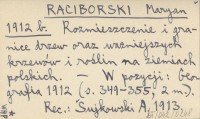 RACIBORSKI Maryan
1912 b. Rozmieszczenie i gra-
nice drzew oraz ważniejszych
krzewów i roślin na ziemiach
polskich. – W pozycji: Geo-
grafia 1912 (s. 349-355, 2 m.).
Rec.: Sujkowski A, 1913.